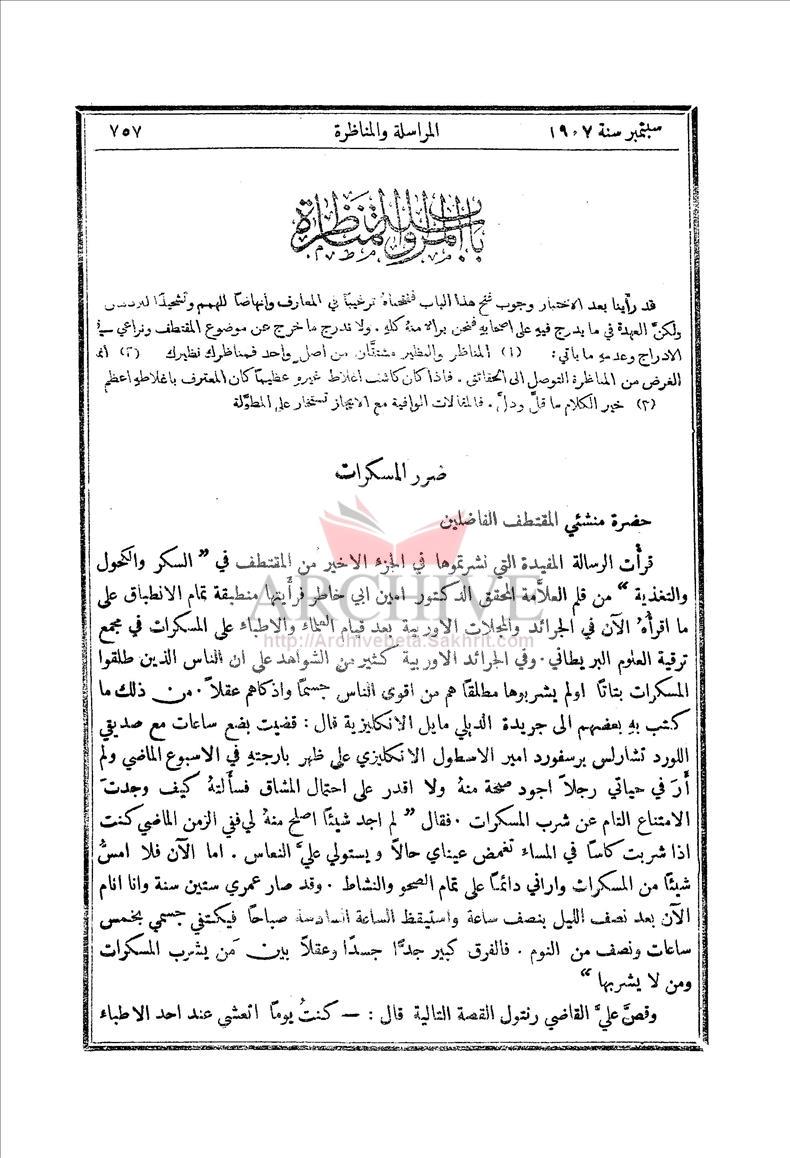 سبتمبر سنة ١٩٠٧ المراسلة والمناظرة ٧٥٧
باب المراسلة والمناظرة
قد رأينا بعد الاختبار وجوب فتح هذا الباب ففتحناهُ ترغيبًا في المعارف وإنهاضًا للهمم وتشحيذًا للاذهان
ولكنَّ العهدة في ما يدرج فيهِ على اصحابهِ فنحن براءٌ منهُ كلهِ . ولا ندرج ما خرج عن موضوع المقتطف ونراعي في
الادراج وعدمهِ ما يأتي : (١) المناظر والنظير مشتقَّان من اصلٍ واحد فمناظرك نظيرك (٢) انما
الغرض من المناظرة التوصل الى الحقائق . فاذا كان كاشف اغلاط غيرهِ عظيمًا كان المعترف باغلاطهِ اعظم
(٣) خير الكلام ما قلَّ ودلَّ . فالمقالات الوافية مع الايجاز تستخار على المطوَّلة
ضرر المسكرات
حضرة منشئي المقتطف الفاضلين
قرأت الرسالة المفيدة التي نشرتموها في الجزء الاخير من المقتطف في " السكر والكحول
والتغذية " من قلم العلاَّمة المحقق الدكتور امين ابي خاطر فرأيتها منطبقة تمام الانطباق على
ما اقرأهُ الآن في الجرائد والمجلات الاوربية بعد قيام العلماء والاطباء على المسكرات في مجمع
ترقية العلوم البريطاني . وفي الجرائد الاوربية كثير من الشواهد على ان الناس الذين طلقوا
المسكرات بتاتًا او لم يشربوها مطلقًا هم من اقوى الناس جسمًا واذكاهم عقلاً . من ذلك ما
كتب بهِ بعضهم الى جريدة الدايلي مايل الانكليزية قال : قضيت بضع ساعات مع صديقي
اللورد تشارلس برسفورد امير الاسطول الانكليزي على ظهر بارجتهِ في الاسبوع الماضي ولم
أرَ في حياتي رجلاً اجود صحة منهُ ولا اقدر على احتمال المشاق فسألتهُ كيف وجدتَ
الامتناع التام عن شرب المسكرات . فقال " لم اجد شيئًا اصلح منهُ لي ففي الزمن الماضي كنت
اذا شربت كاسًا في المساء تغمض عيناي حالاً ويستولي عليَّ النعاس . اما الآن فلا امسُّ
شيئًا من المسكرات واراني دائمًا على تمام الصحو والنشاط . وقد صار عمري ستين سنة وانا انام
الآن بعد نصف الليل بنصف ساعة واستيقظ الساعة السادسة صباحًا فيكتفي جسمي بخمس
ساعات ونصف من النوم . فالفرق كبير جدًّا جسدًا وعقلاً بين مَن يشرب المسكرات
ومن لا يشربها "
وقصَّ عليَّ القاضي رنتول القصة التالية قال : — كنتُ يومًا اتعشى عند احد الاطباء
ARCHIVE
http://Archivebeta.Sakhrit.com